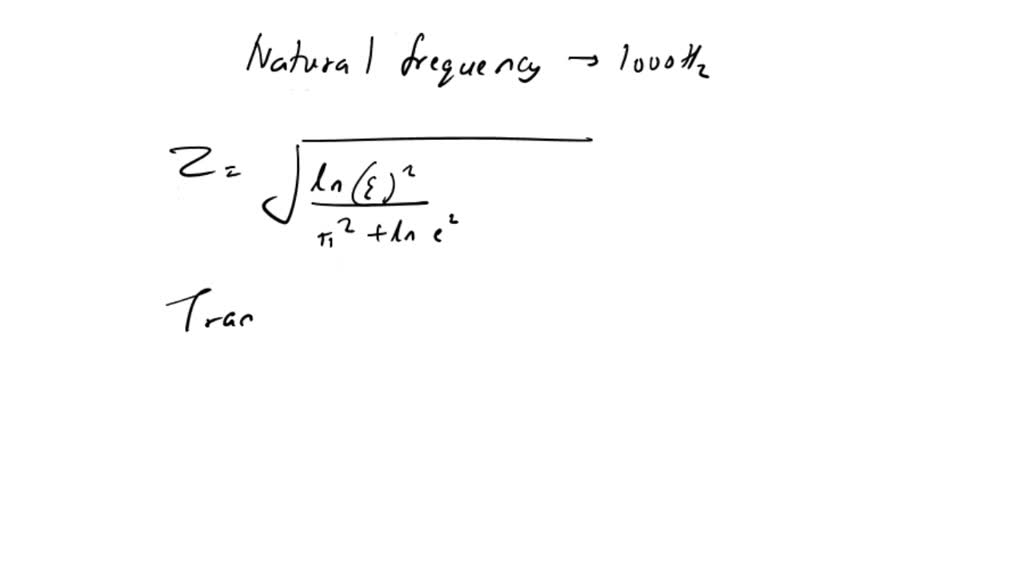 Natural frequency → 1000Hz
Z = √(ln(ε)² / π² + ln e²)
Tran